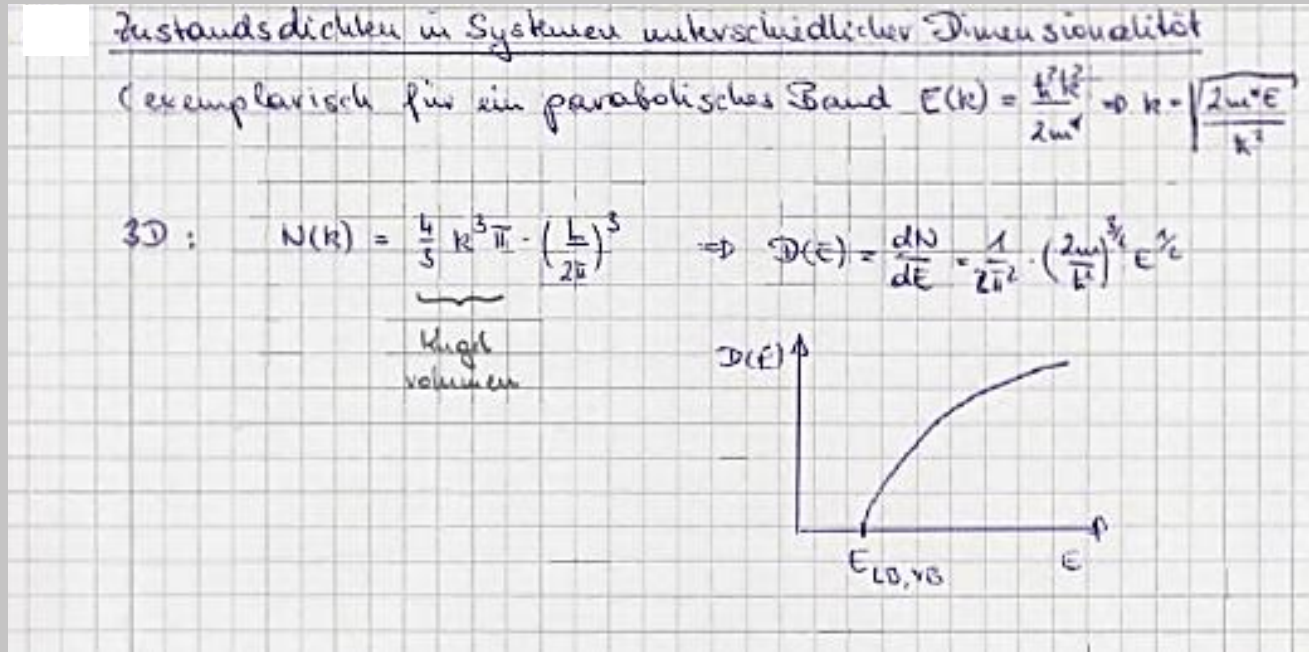 Zustandsdichten in Systemen unterschiedlicher Dimensionalität
(exemplarisch für ein parabolisches Band E(k) = ħ²k²/2m* ⇒ k = √(2m*E/ħ²)
3D: N(k) = 4/3 k³π · (L/2π)³ ⇒ D(E) = dN/dE = 1/2π² · (2m/ħ²)^3/2 E^1/2
Kugel
volumen
D(E)
E_LB,VB E